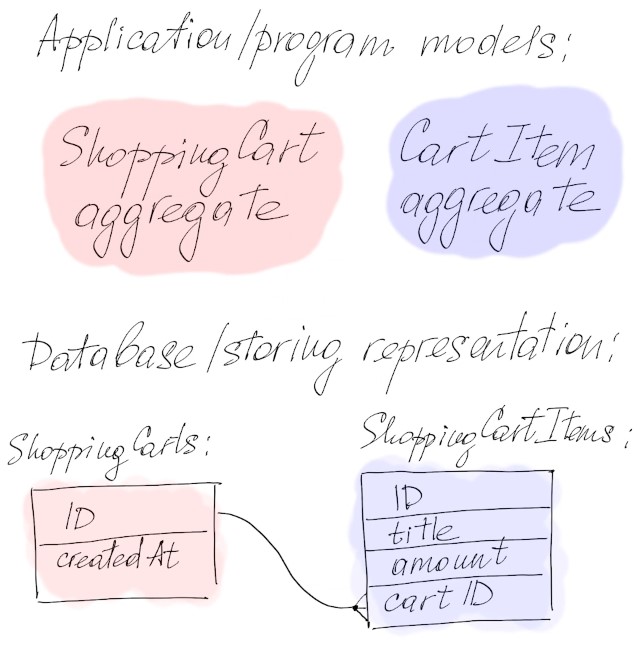 Application/program models:
ShoppingCart
aggregate
CartItem
aggregate
Database/storing representation:
ShoppingCarts:
ID
createdAt
ShoppingCartItems:
ID
title
amount
cartID